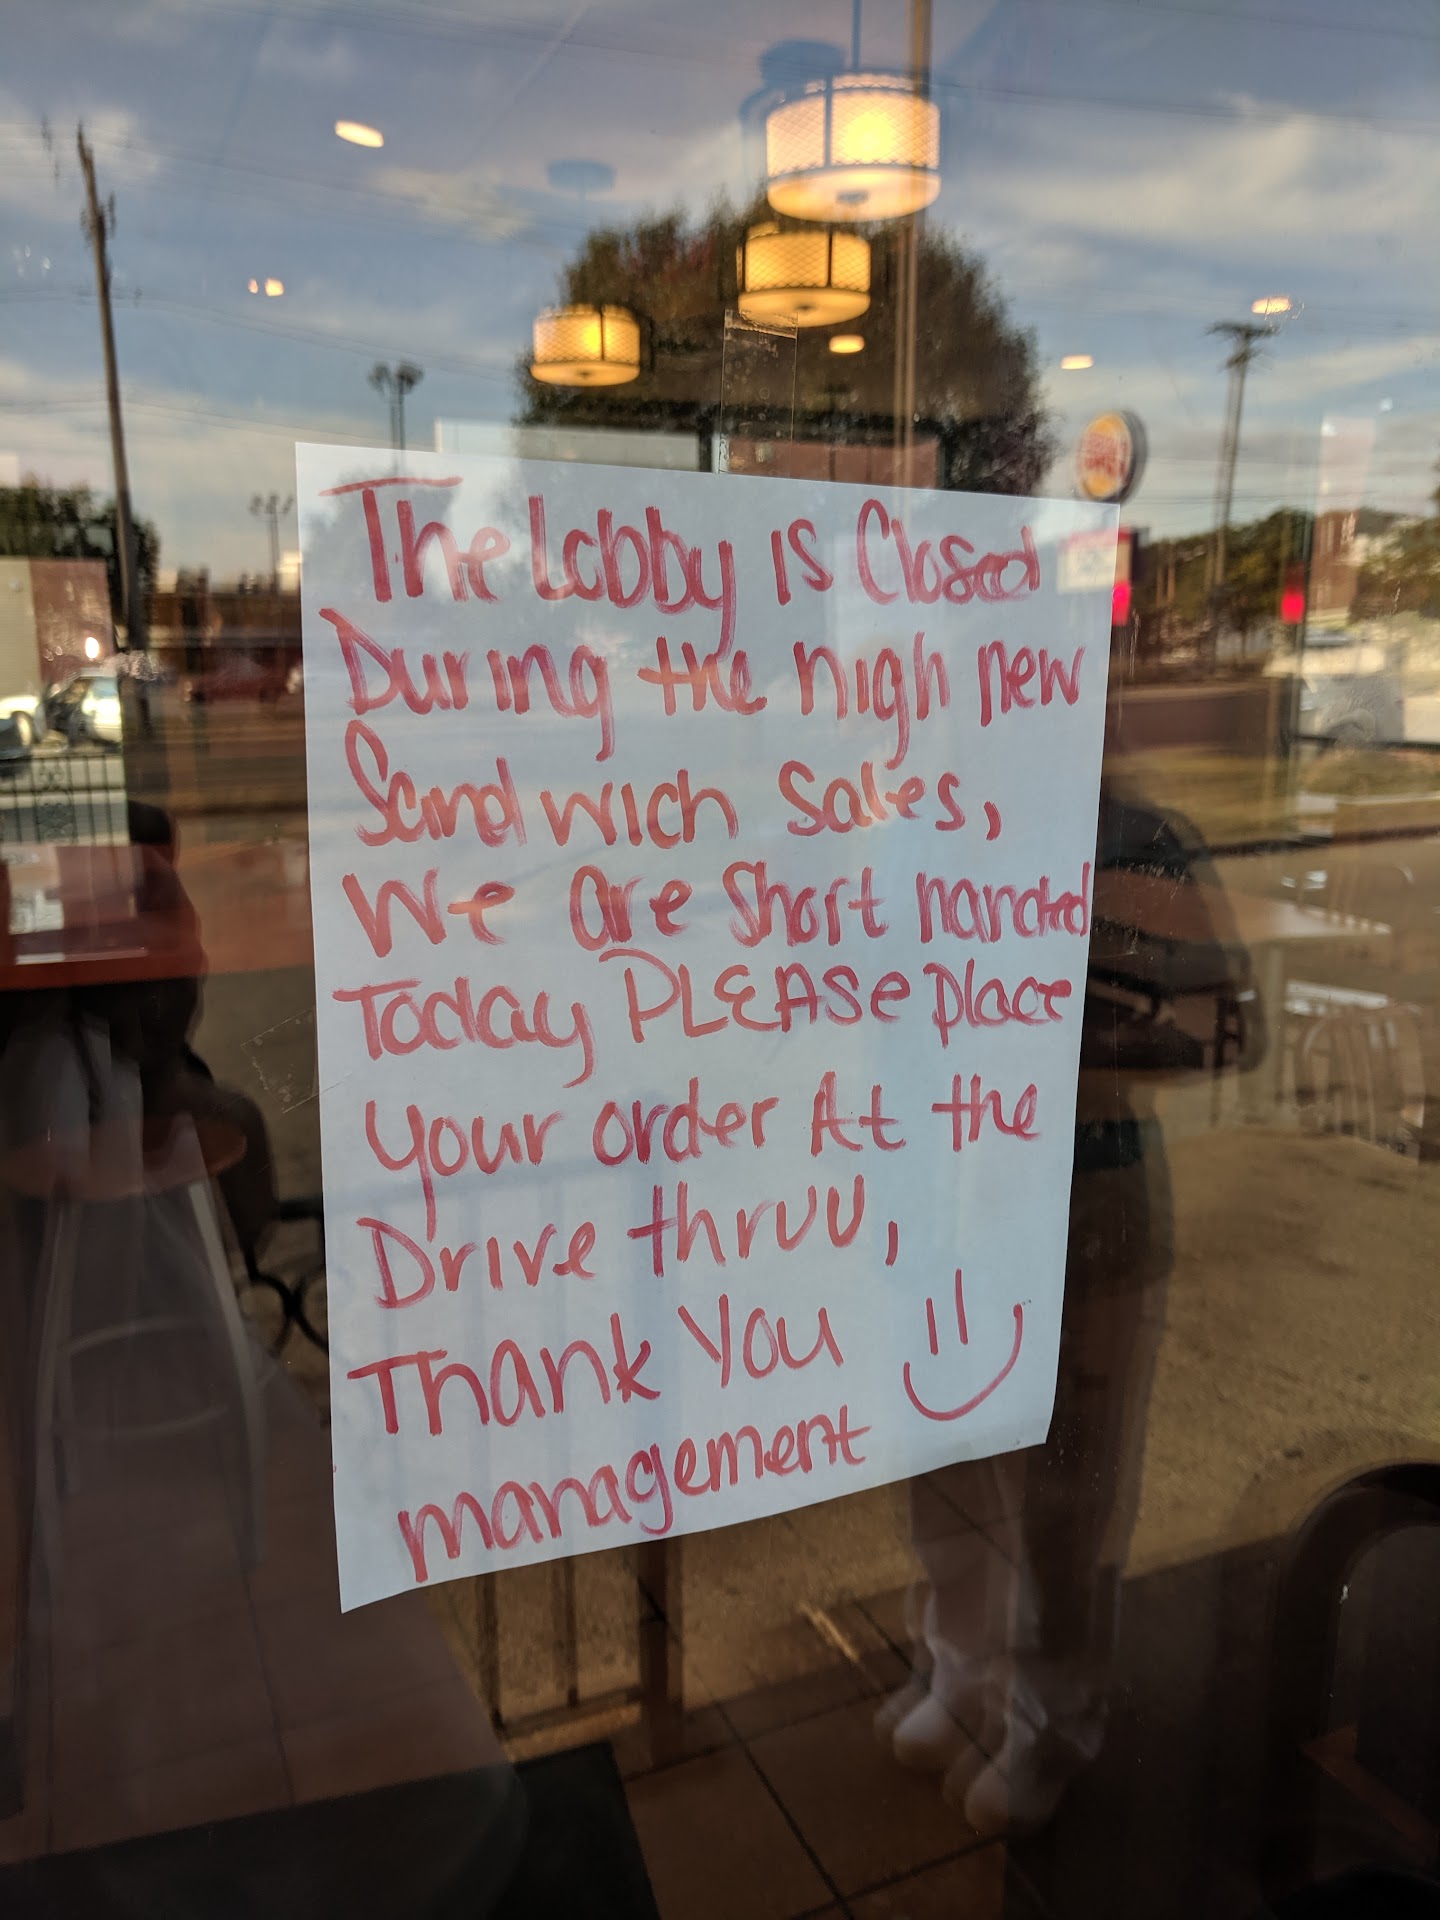 The Lobby is Closed
During the nigh new
Sandwich Sales,
We are Short handed
Today PLEASE place
your order At the
Drive thruu,
Thank You
management